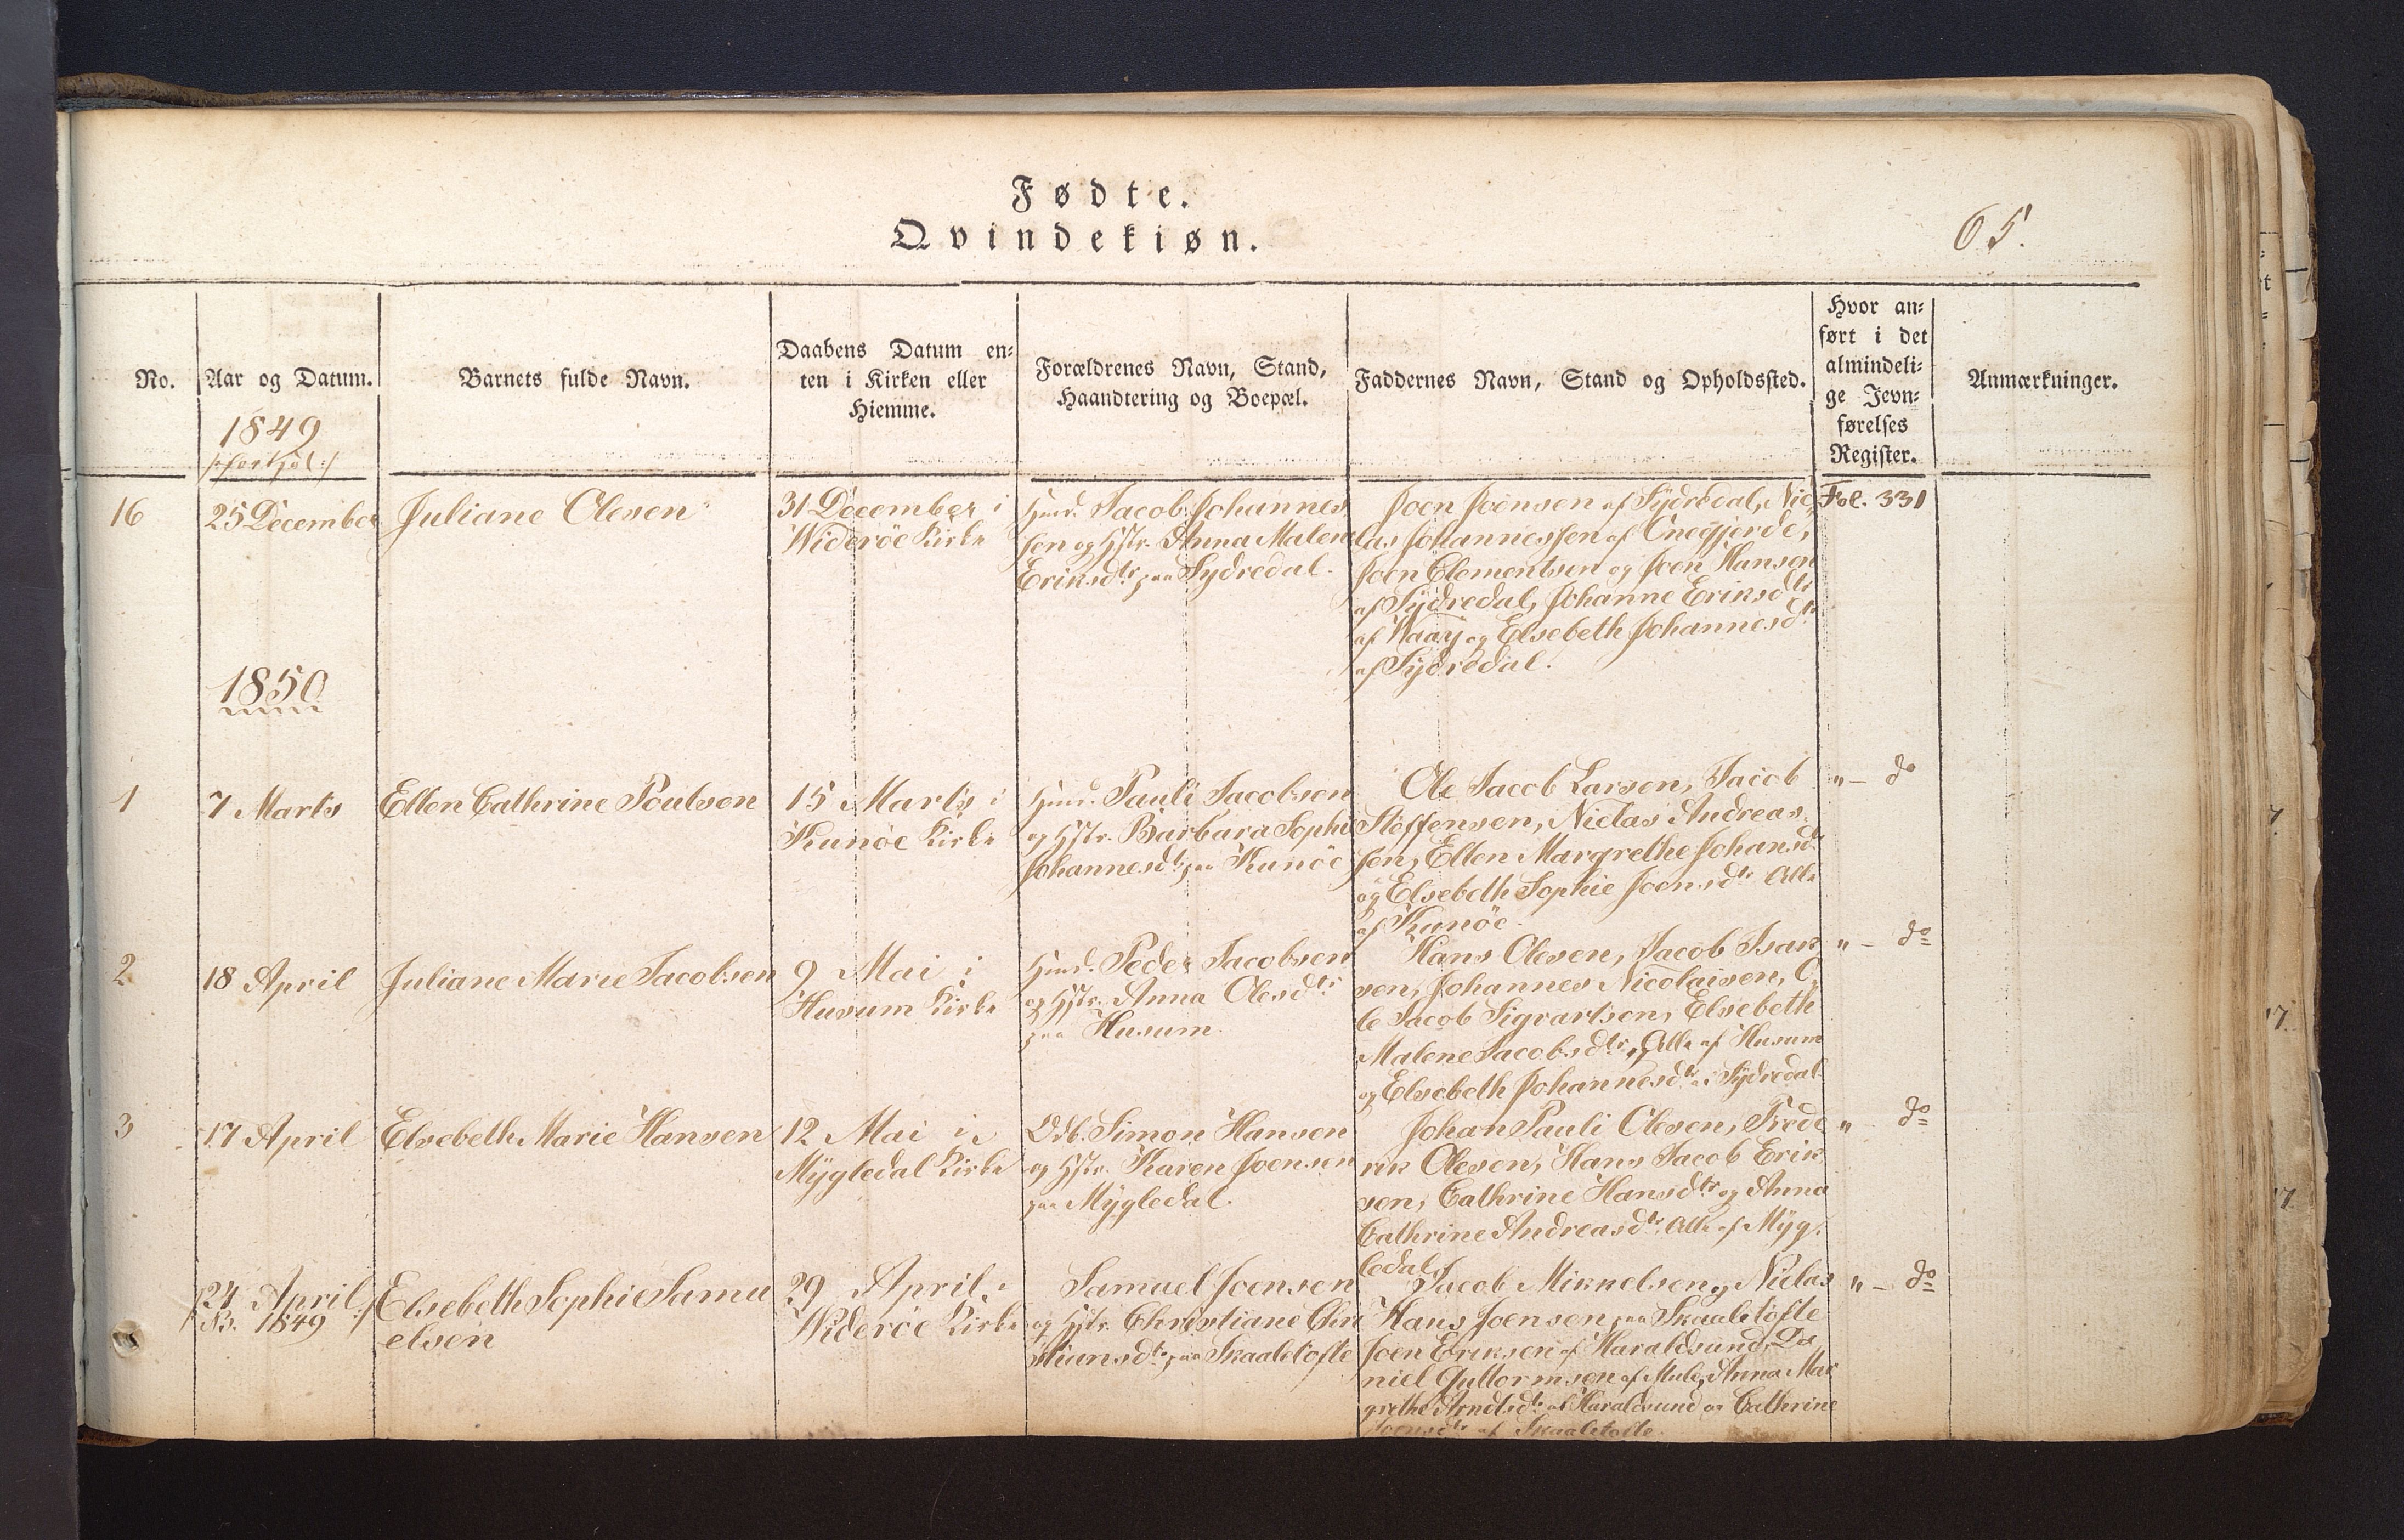 Fødte.
Qvindekiøn.
65.
No.
Aar og Datum.
Barnets fulde Navn.
Daabens Datum en-
ten i Kirken eller
Hiemme.
Forældrenes Navn, Stand,
Haandtering og Boepæl.
Faddernes Navn, Stand og Opholdssted.
Hvor an-
ført i det
almindeli-
ge Jevn-
førelses
Register.
Anmærkninger.
1849
16
25 December
Juliane Olesen
31 December i
Widerøe Kirke
Hmd. Jacob Johannes
sen og Hstr. Anna Malene
Eriksdtr paa Sydredal.
Joen Joensen af Sydredal, Nic-
las Johannessen af Qnegjerde,
Joen Clementsen og Joen Hansen
af Sydredal, Johanne Eriksdtr
af Waay og Elsebeth Johannesdtr
af Sydredal.
Fol. 331
1850
1
7 Marts
Ellen Cathrine Poulsen
15 Marts i
Kunöe Kirke
Hmd. Pauli Jacobsen
og Hstr. Barbara Sophie
Johannesdtr paa Kunöe
Ole Jacob Larsen, Jacob
Steffensen, Niclas Andreas-
sen, Ellen Margrethe Johansd.
og Elsebeth Sophie Joensdtr Alle
af Kunöe.
" — do
2
18 April
Juliane Marie Jacobsen
9 Mai i
Husum Kirke
Hmd. Peder Jacobsen
og Hstr. Anna Olesdtr
paa Husum.
Hans Olesen, Jacob Isak
sen, Johannes Nicolaisen, O-
le Jacob Sigvartsen, Elsebeth
Malene Jacobsdtr, Alle af Husum
og Elsebeth Johannesdtr i Sydredal
" — do
3
17 April
Elsebeth Marie Hansen
12 Mai i
Mygledal Kirke
Odb. Simon Hansen
og Hstr. Karen Joensen
paa Mygledal.
Johan Pauli Olesen, Frede
rik Olesen, Hans Jacob Erik
sen, Cathrine Hansdtr og Anna
Cathrine Andreasdtr. Alle af Myg-
ledal.
" — do
24 April
1849
Elsebeth Sophie Samu
elsen
29 April i
Widerøe Kirke
Samuel Joensen
og Hstr. Christiane Chri
stiansdtr paa Skaaletofte
Jacob Mikkelsen, Niclas
Hans Joensen paa Skaaletofte
Joen Eriksen af Haraldsund, Da
niel Guttormsen af Mule, Anna Mar
grethe Arndtsdtr af Haraldsund og Cathrine
Joensdtr af Skaaletofte.
" — do